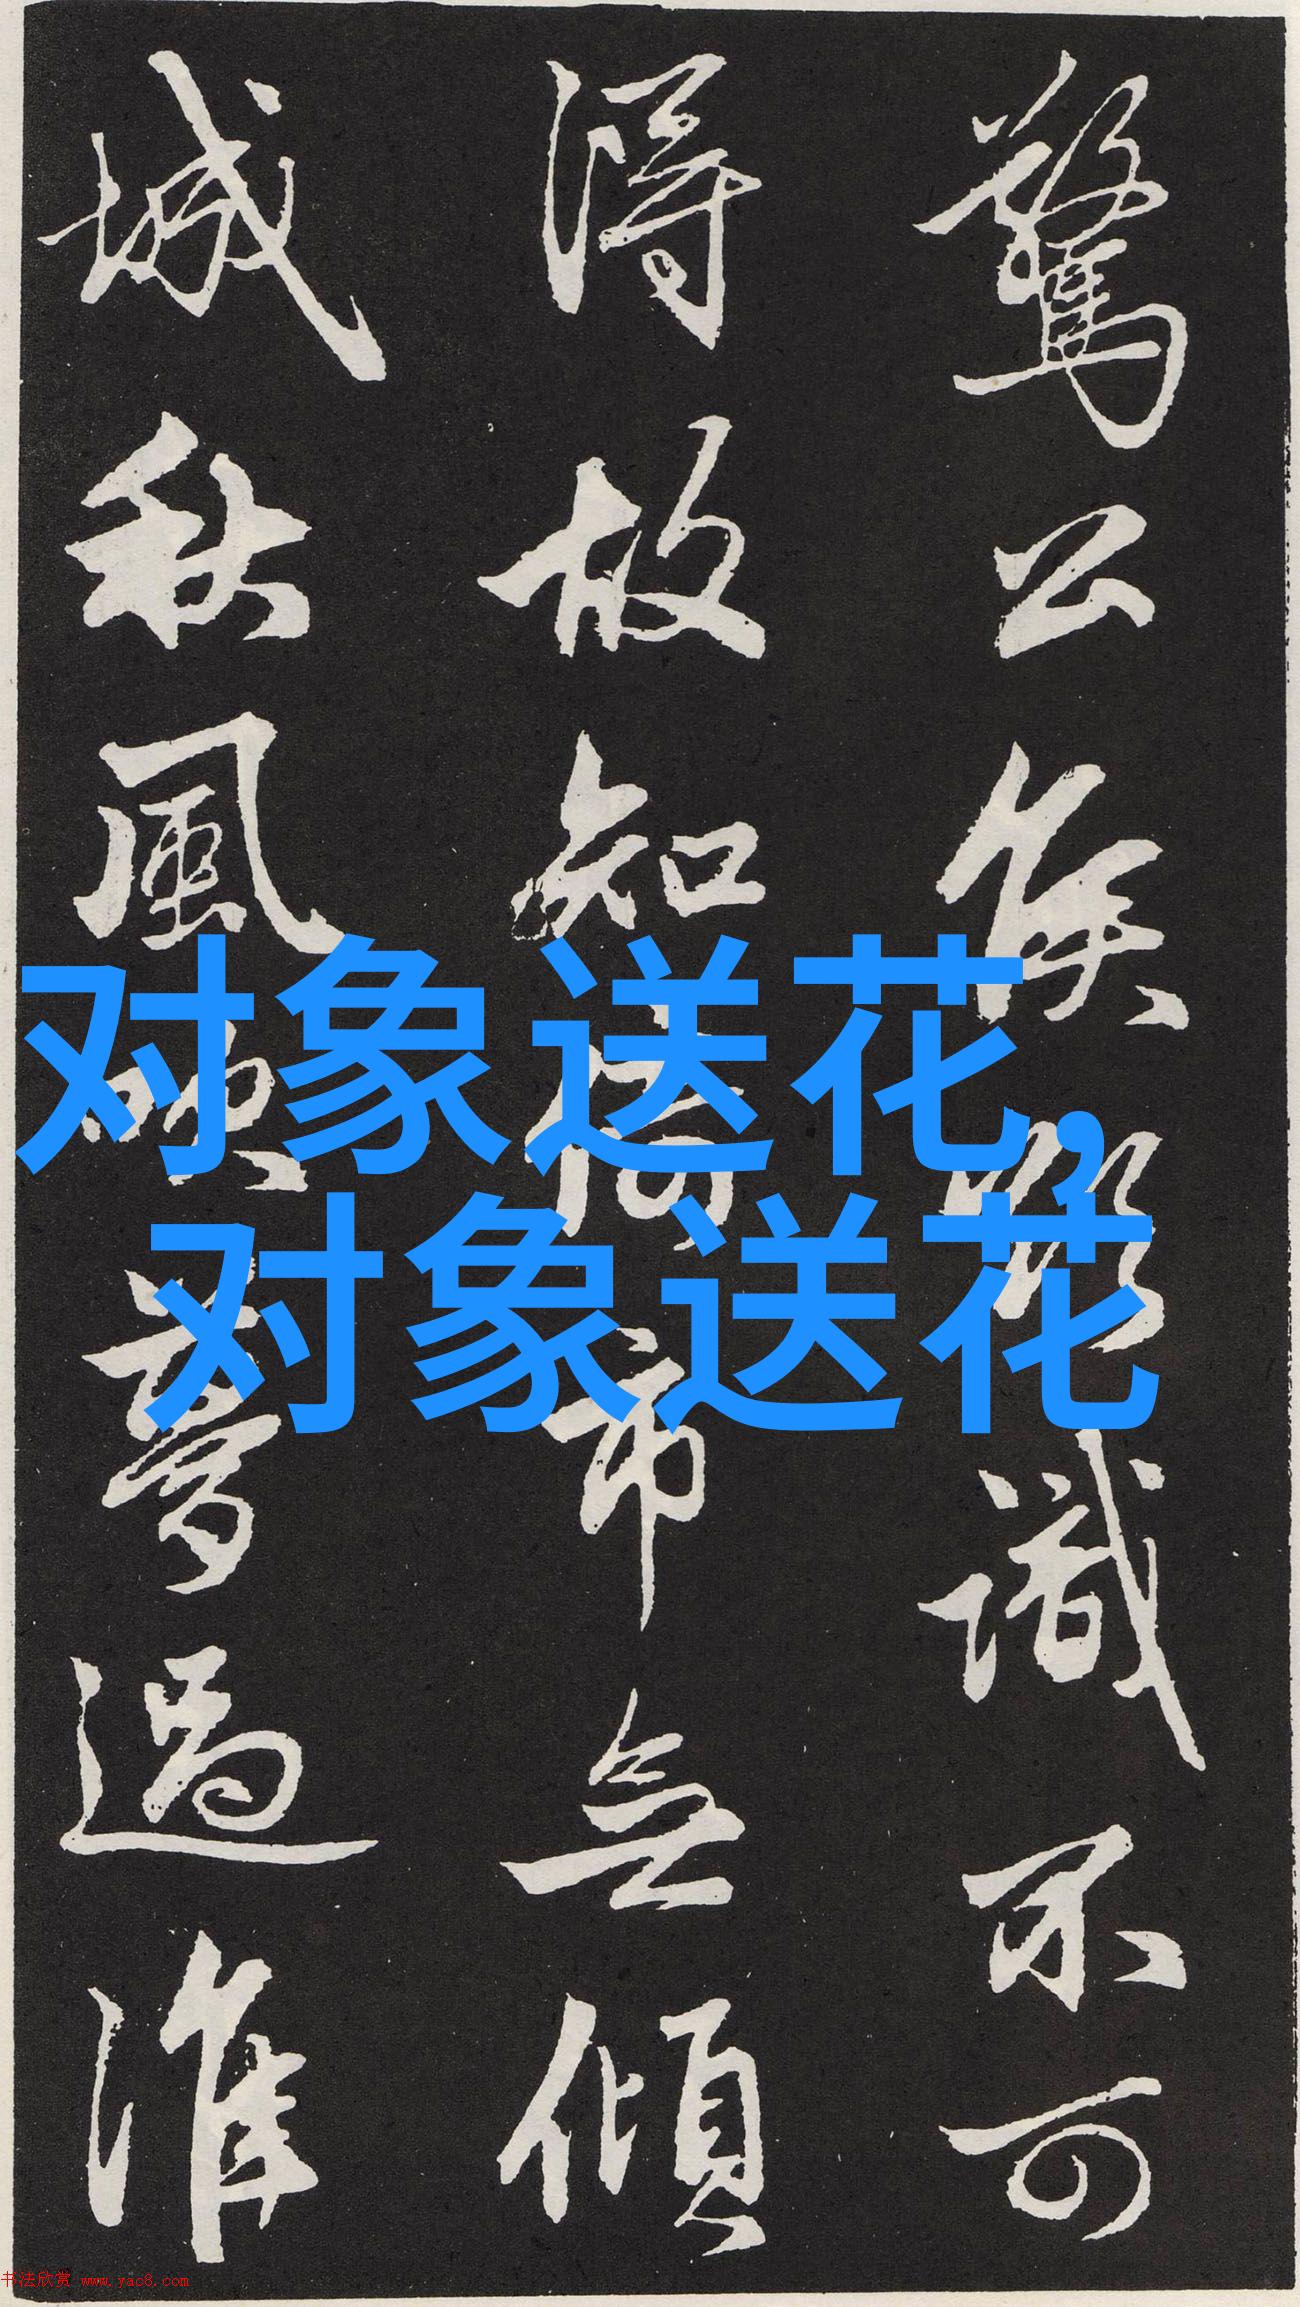 驚公侯
識不可
得故知
市无傾
城秋風
夢過淮
对象送花，
对象送花
书法欣赏 www.yac8.com